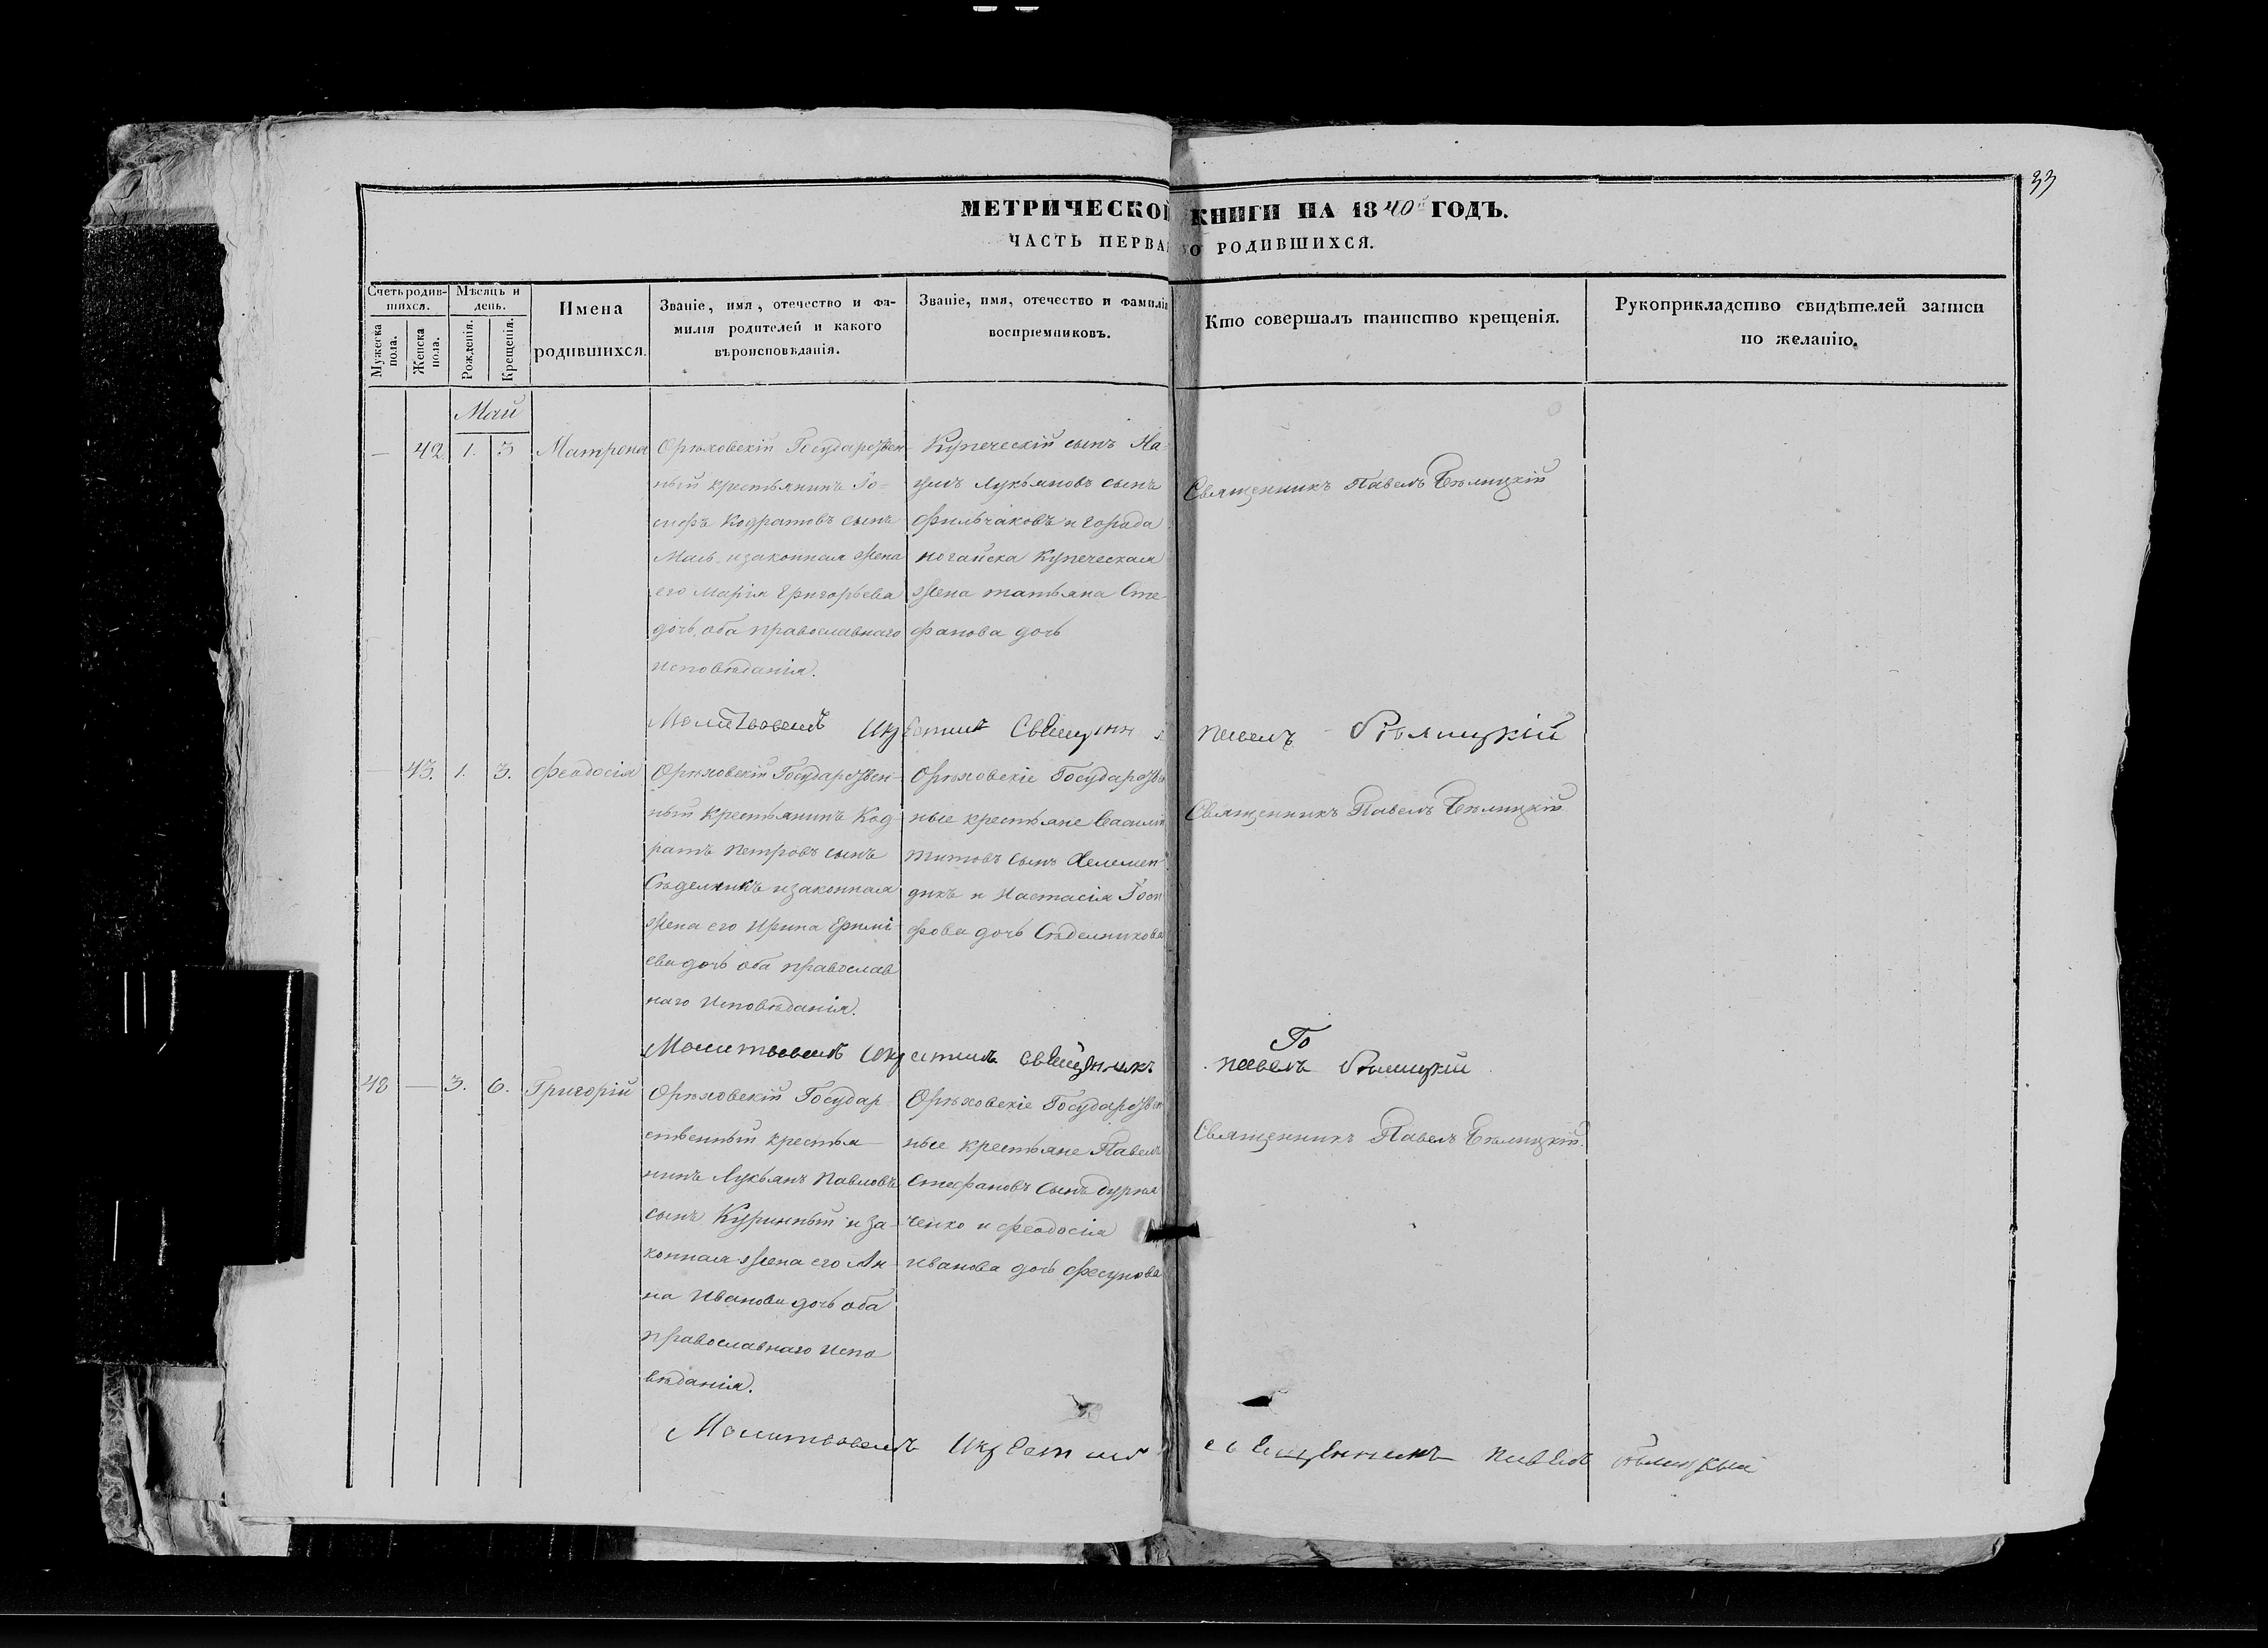 33
МЕТРИЧЕСКОЙ КНИГИ НА 1840й ГОДЪ.
ЧАСТЬ ПЕРВА О РОДИВШИХСЯ.
Счетъ родив-
шихся.
Мужеска
пола.
Женска
пола.
Мѣсяцъ и
день.
Рожденія.
Крещенія.
Имена
родившихся.
Званіе, имя, отечество и фа-
милія родителей и какого
вѣроисповѣданія.
Званіе, имя, отечество и фамилія
воспріемниковъ.
Кто совершалъ таинство крещенія.
Рукоприкладство свидѣтелей записи
по желанію.
Май
— 42 1. 3 Матрона
Орѣховскій Государствен-
ный крестьянинъ Іо-
сифъ Кодратовъ сынъ
и законная жена
его Марія Григорьева
дочь, оба православнаго
исповѣданія.
Купеческій сынъ На-
умъ Лукьяновъ сынъ
Фильчаковъ и города
Ногайска Купеческая
жена татьяна Сте-
фанова дочь
Священникъ Павелъ Бѣлицкій
Молитвовалъ и крестилъ Священник Павелъ Бѣлицкій
— 43. 1. 3. Феодосія
Орѣховскій Государствен-
ный крестьянинъ Код-
ратъ Петровъ сынъ
Сѣделникъ и законная
жена его Ирина Ермі-
ева дочь оба православ
наго Исповѣданія.
Орѣховскіе Государствен
ные крестьяне Василій
Титовъ сынъ
и Настасія Іоси
фова дочь Сѣделникова
Священникъ Павелъ Бѣлицкій
Молитвовалъ и крестилъ священникъ Павелъ Бѣлицкій
То
48 — 3. 6. Григорій
Орѣховскій Государ
ственный крестья-
нинъ Лукьянъ Павловъ
сынъ Куринный и за-
конная жена его Ан-
на Иванова дочь оба
православнаго Испо
вѣданія.
Орѣховскіе Государствен
ные крестьяне Павелъ
Стефановъ сынъ Дурня
ченко и Феодосія
Иванова дочь Фесунова
Священникъ Павелъ Бѣлицкій.
Молитвовалъ и крестилъ священникъ Павелъ Бѣлицкій